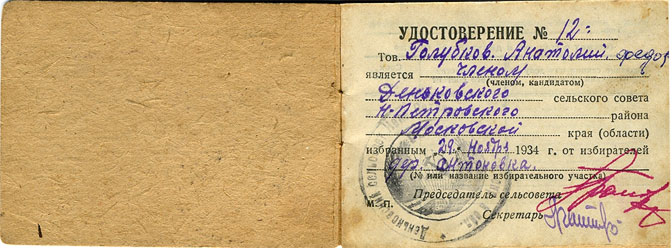 УДОСТОВЕРЕНИЕ № 12:
Тов. Голубков. Анатолий. федор
является членом
(членом, кандидатом)
Деньковского сельского совета
Н-Петровского района
Московской края (области)
избранным 29 ноября 1934 г. от избирателей
дер. Антоновка.
(№ или название избирательного участка)
Председатель сельсовета
М. П. Секретарь